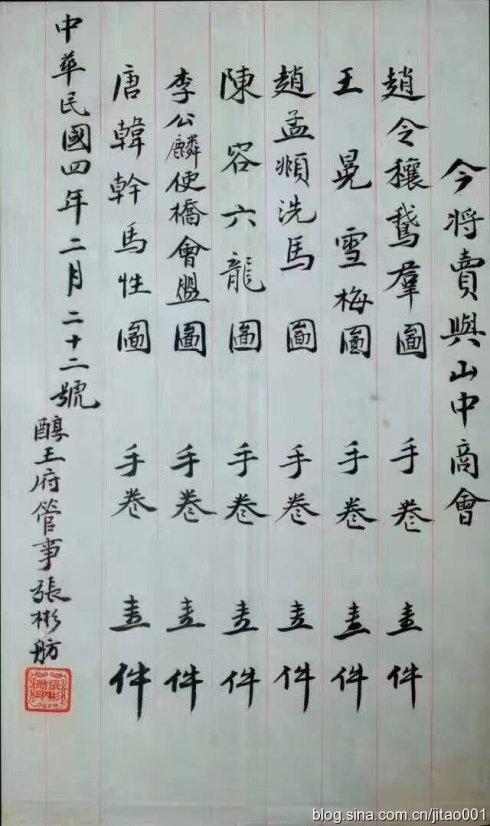 今將賣與山中商會
趙令穰鵞羣圖 手卷 壹件
王晃雪梅圖 手卷 壹件
趙孟頫洗馬圖 手卷 壹件
陳容六龍圖 手卷 壹件
李公麟便橋會盟圖 手卷 壹件
唐韓幹馬性圖 手卷 壹件
中華民國四年二月二十二號
醇王府管事張彬舫
blog.sina.com.cn/jitao001